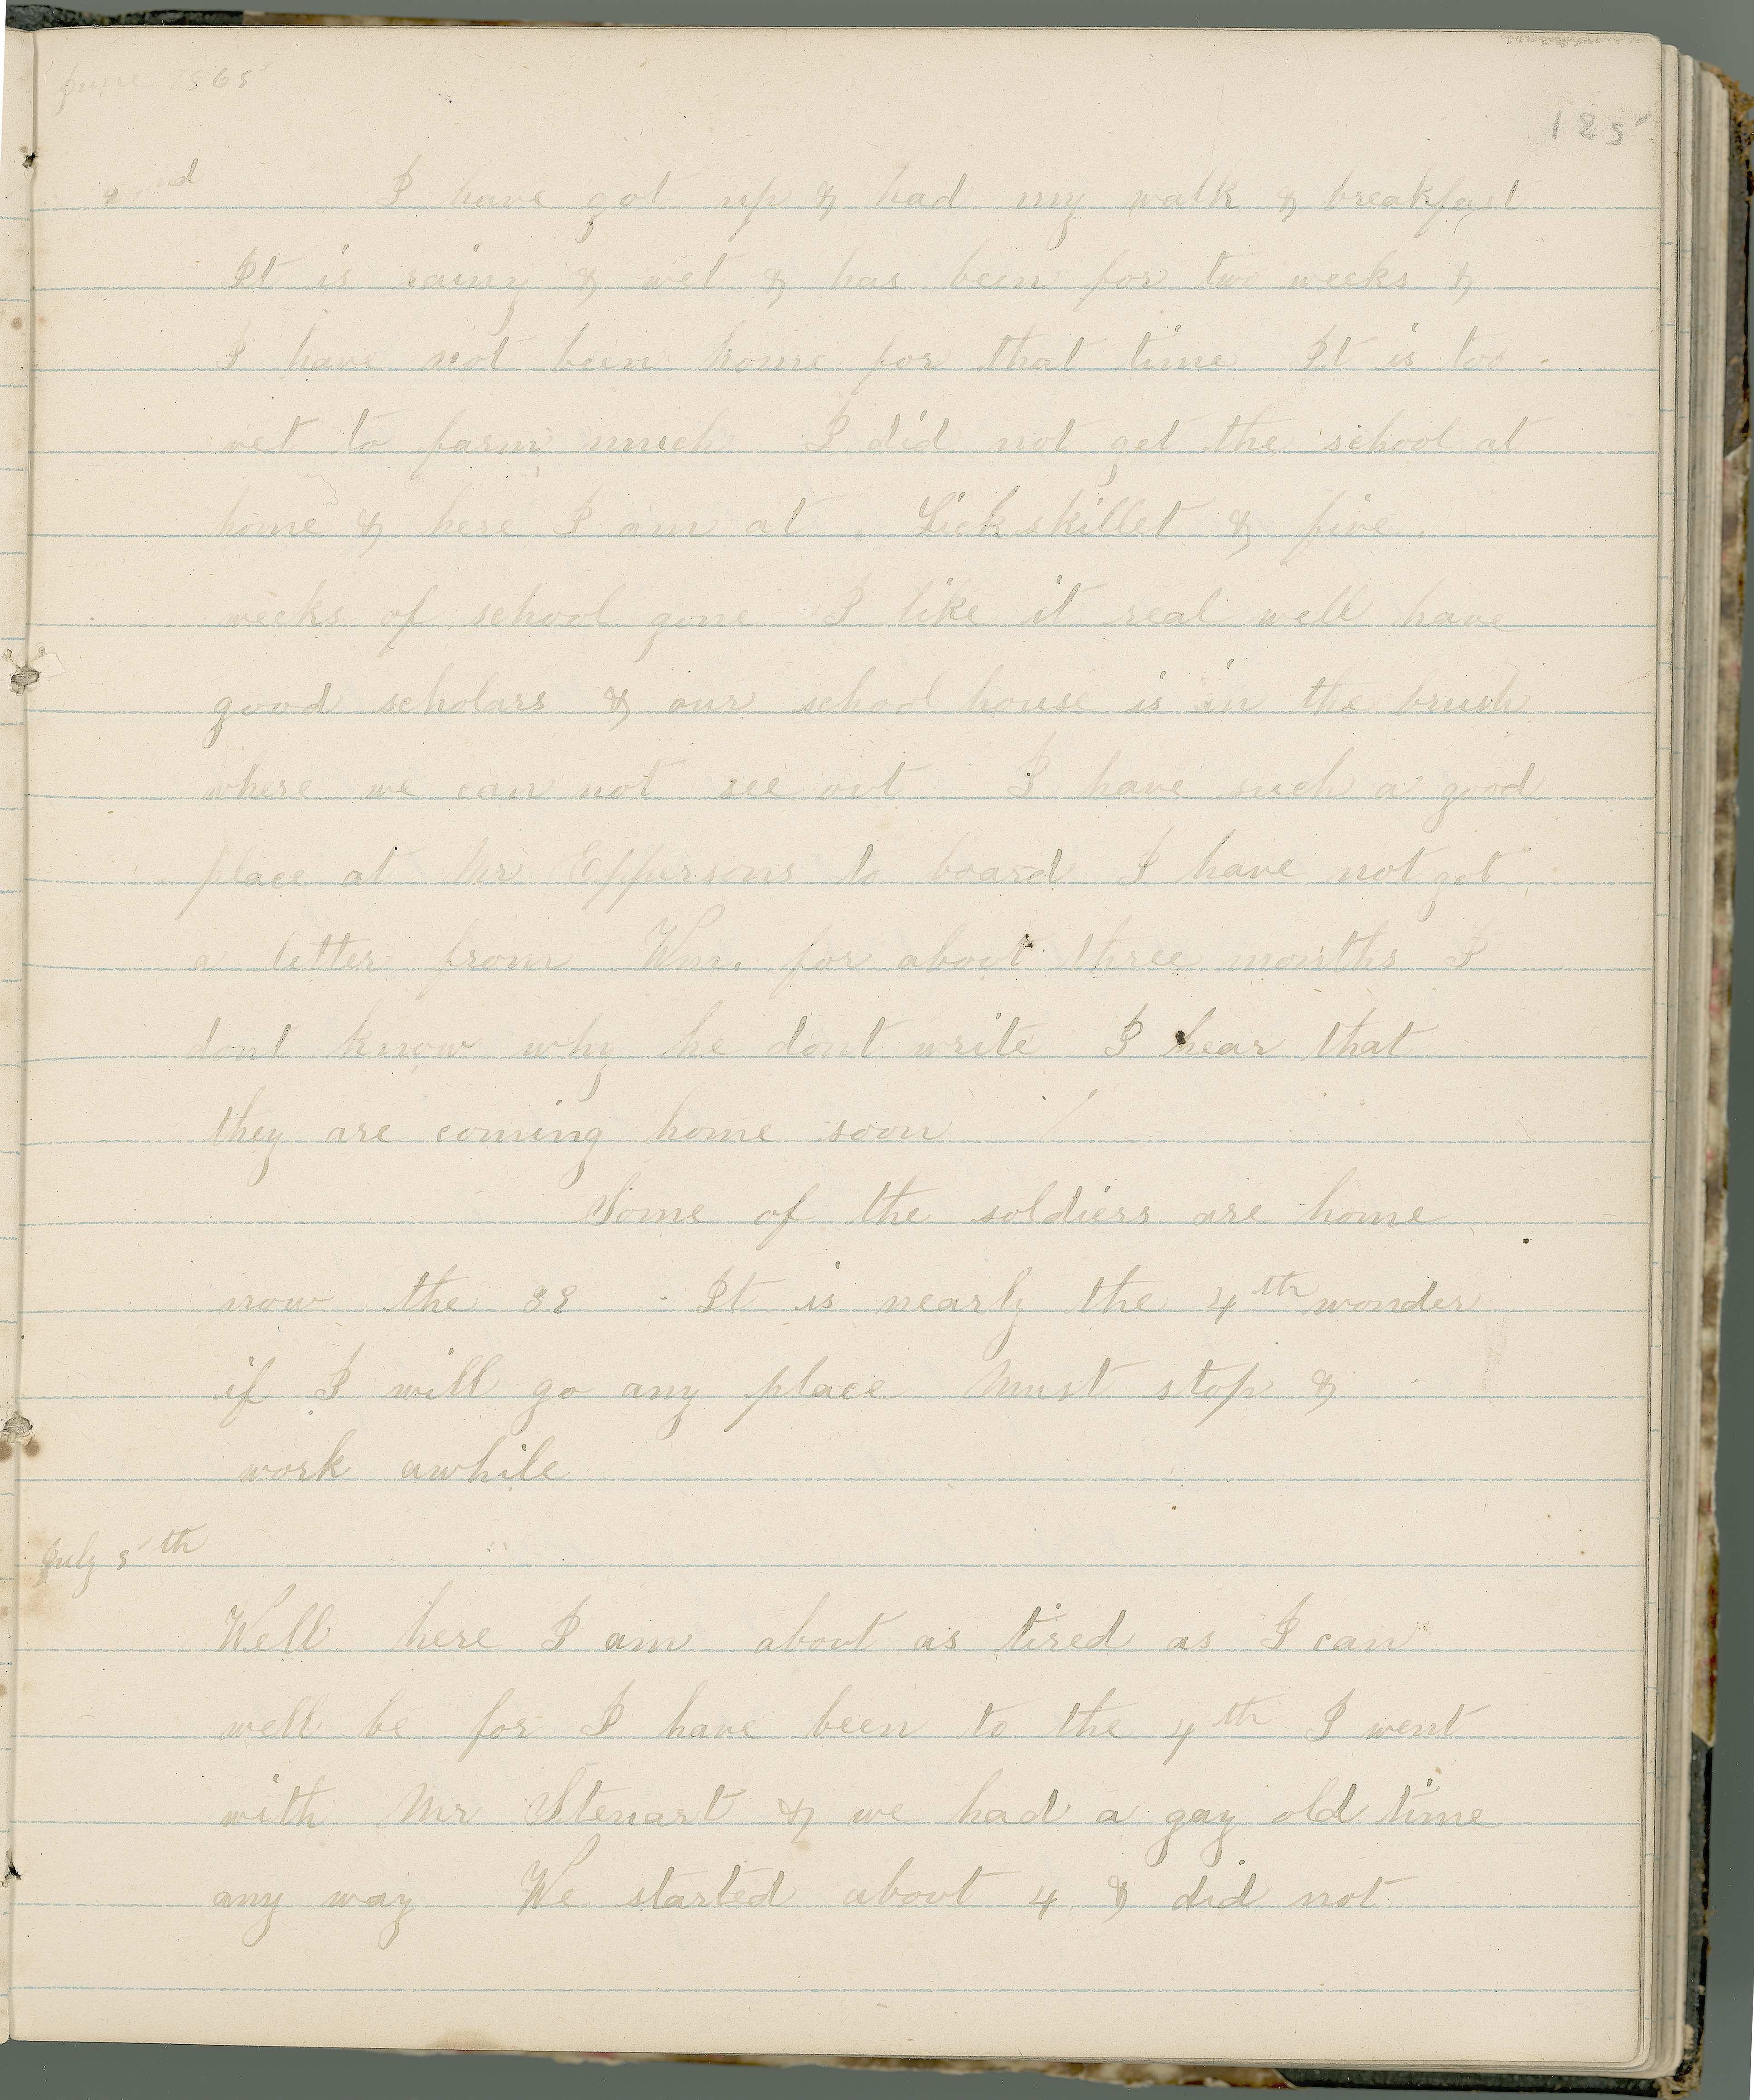 June 1865
125
I have got up & had my walk & breakfast
It is rainy & wet & has been for two weeks &
I have not been home for that time It is too
wet to farm much I did not get the school at
home & here I am at Lickskillet & five
weeks of school gone I like it real well have
good scholars & our school house is in the brush
where we can not see out I have such a good
place at Mr Eppersons to board I have not got
a letter from Wm. for about three months I
dont know why he dont write I hear that
they are coming home soon
Some of the soldiers are home
now the It is nearly the 4th wonder
if I will go any place Must stop &
work awhile
July 5th
Well here I am about as tired as I can
well be for I have been to the 4th I went
with Mr Stewart & we had a gay old time
any way We started about 4 & did not